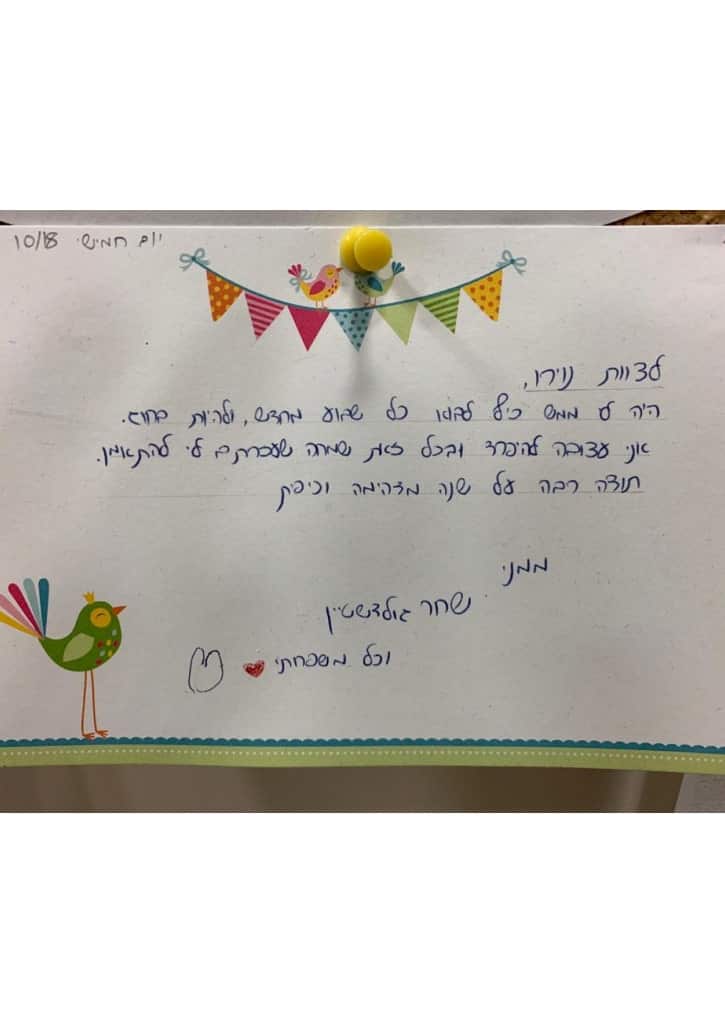 יום חמישי 10/18
לצוות נוירו,
היה לי ממש כיף לבוא כל שבוע מחדש, ולהיות בחוג.
אני עצובה להיפרד ובכל זאת שמחה שעזרתם לי להתאמן.
תודה רבה על שנה מדהימה וכיפית
ממני
שחר גולדשטיין
וכל משפחתי